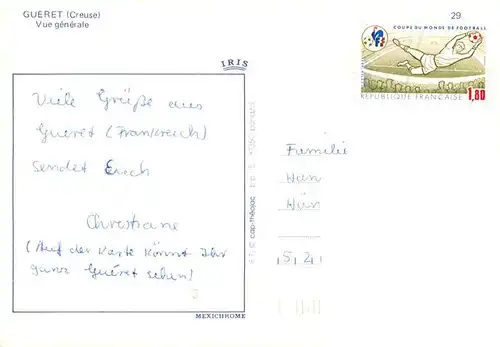 GUERET (Creuse)
Vue générale
29
COUPE DU MONDE DE FOOTBALL
REPUBLIQUE FRANÇAISE 1,80
IRIS
Viele Grüße aus
Gueret (Frankreich)
sendet Euch
Christiane
(Auf der Karte könnt Ihr
ganz Guéret sehen)
Familie
Han
Hün
5 2
MEXICHROME
cap-théojac